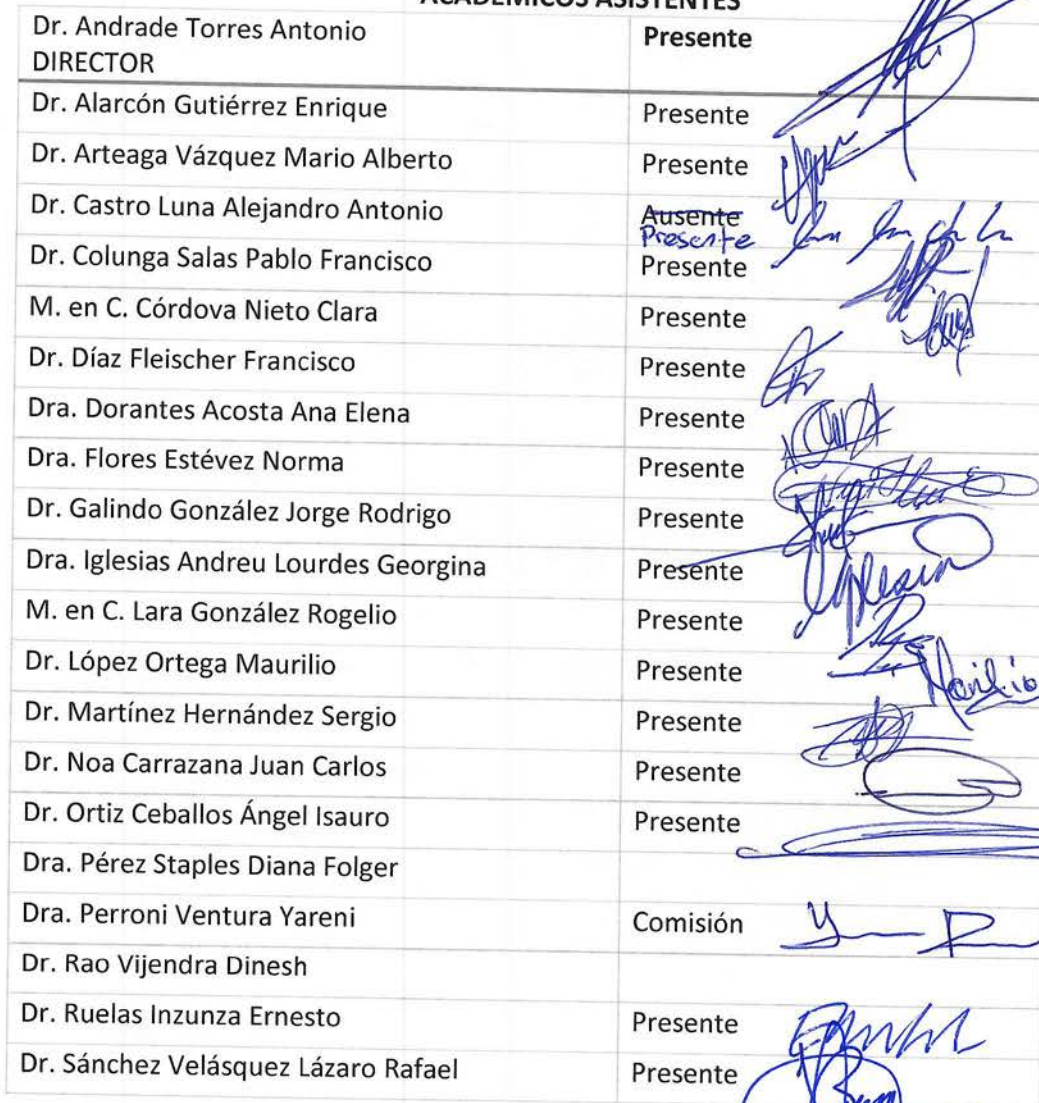 ACADÉMICOS ASISTENTES
Dr. Andrade Torres Antonio Presente
DIRECTOR
Dr. Alarcón Gutiérrez Enrique Presente
Dr. Arteaga Vázquez Mario Alberto Presente
Dr. Castro Luna Alejandro Antonio Ausente
Presente
Dr. Colunga Salas Pablo Francisco Presente
M. en C. Córdova Nieto Clara Presente
Dr. Díaz Fleischer Francisco Presente
Dra. Dorantes Acosta Ana Elena Presente
Dra. Flores Estévez Norma Presente
Dr. Galindo González Jorge Rodrigo Presente
Dra. Iglesias Andreu Lourdes Georgina Presente
M. en C. Lara González Rogelio Presente
Dr. López Ortega Maurilio Presente
Dr. Martínez Hernández Sergio Presente
Dr. Noa Carrazana Juan Carlos Presente
Dr. Ortiz Ceballos Ángel Isauro Presente
Dra. Pérez Staples Diana Folger
Dra. Perroni Ventura Yareni Comisión
Dr. Rao Vijendra Dinesh
Dr. Ruelas Inzunza Ernesto Presente
Dr. Sánchez Velásquez Lázaro Rafael Presente